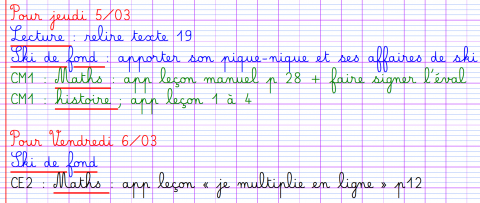 Pour jeudi 5/03
Lecture : relire texte 19
Ski de fond : apporter son pique-nique et ses affaires de ski
CM1 : Maths : app leçon manuel p 28 + faire signer l'éval
CM1 : histoire ; app leçon 1 à 4
Pour Vendredi 6/03
Ski de fond
CE2 : Maths : app leçon « je multiplie en ligne » p12